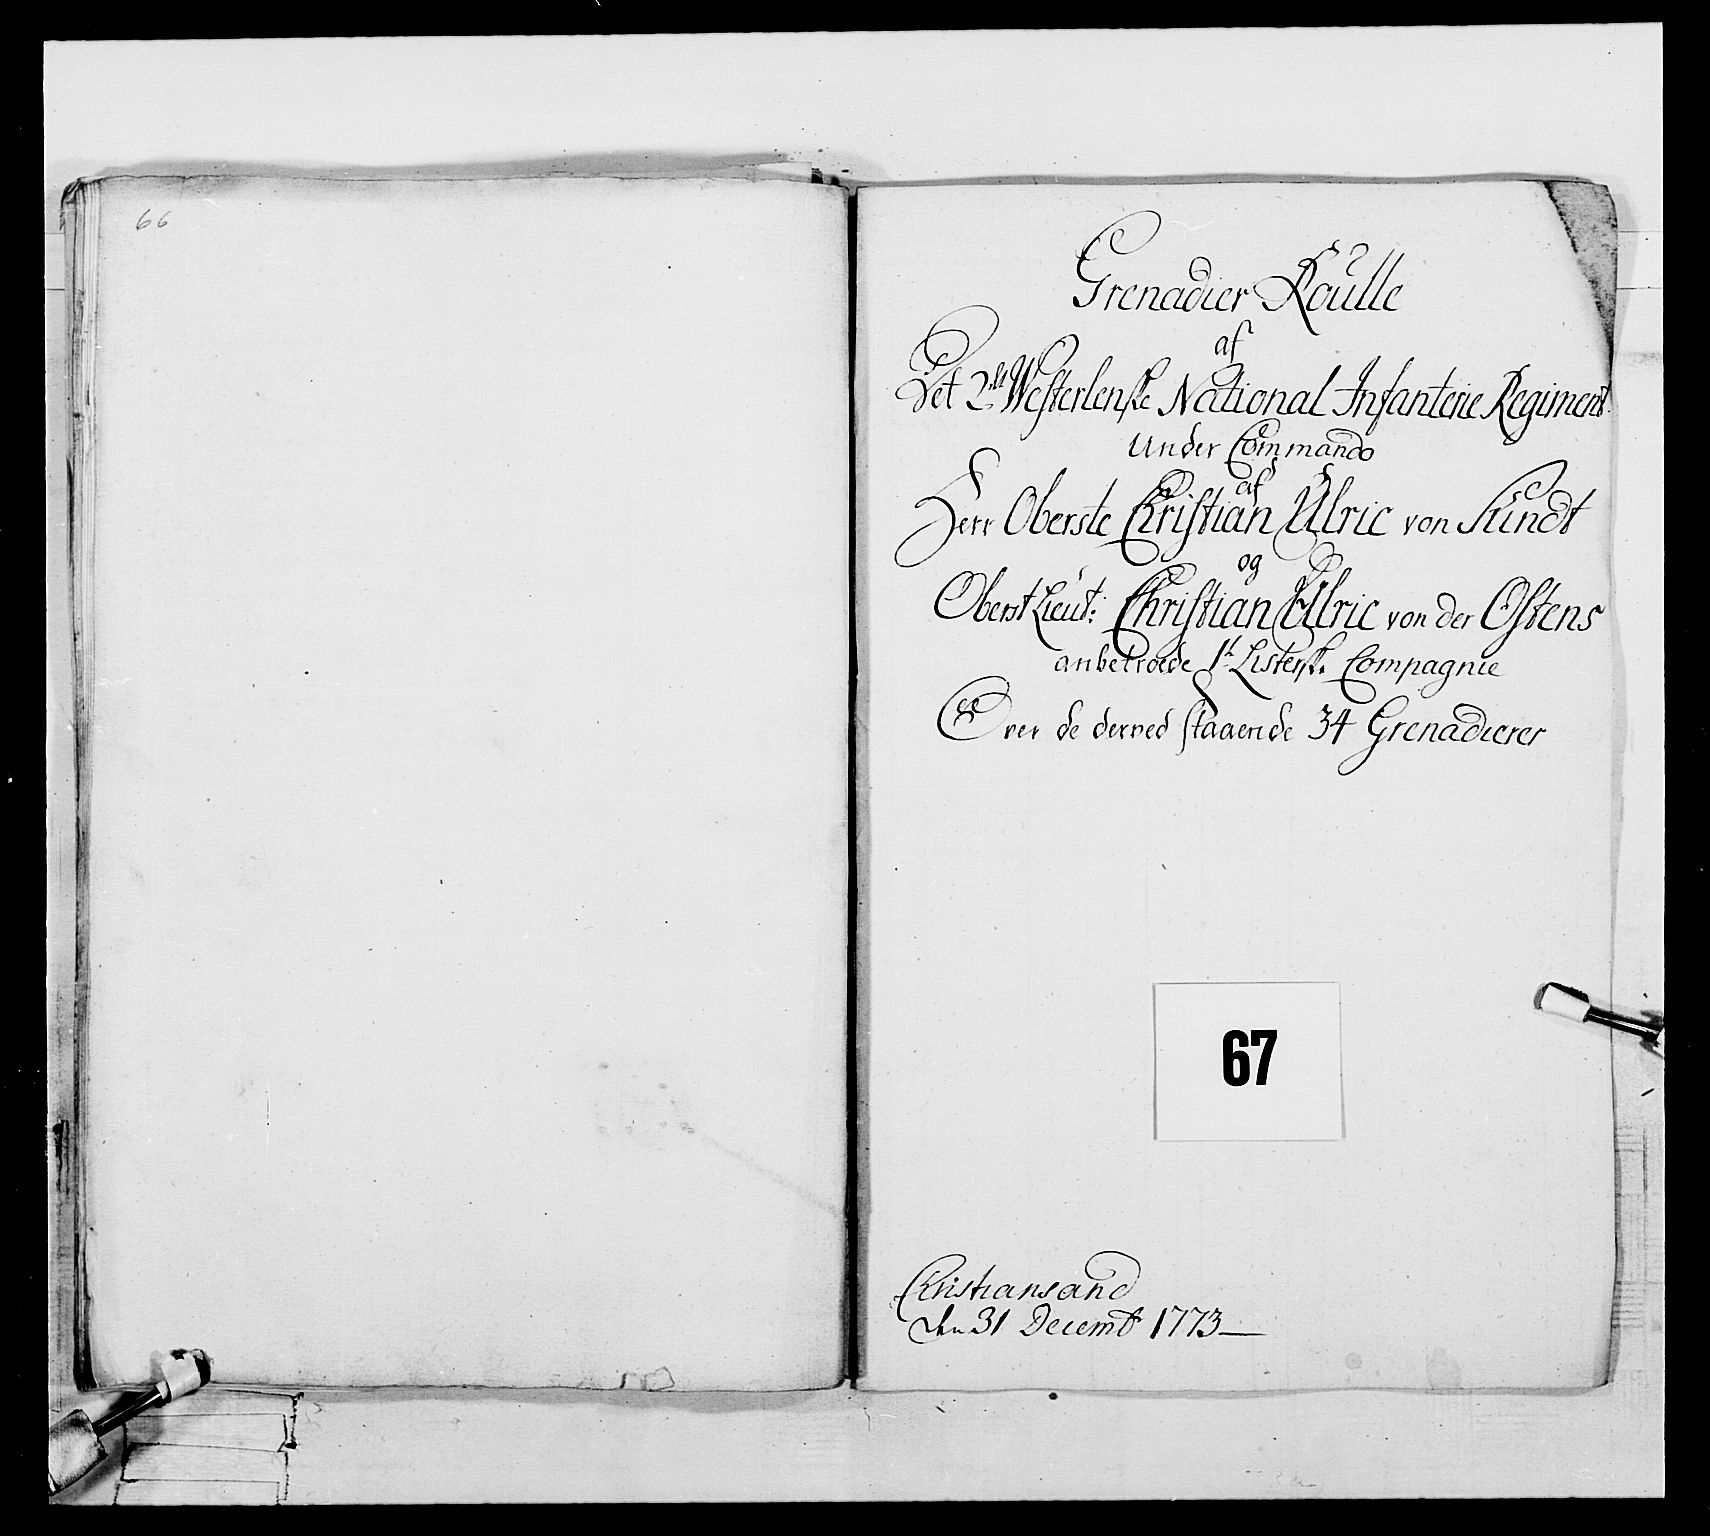 66
Grenadier Roulle
af
Det 2det Westerlenske National Infanterie Regiment
Under Commando
af
Herr Oberste Christian Ulric von Sundt
og
Oberst Lieut: Christian Ulric von der Ostens
anbetroede 1te Listerske Compagnie
Over de derved staaende 34 Grenadierer
67
Christiansand
den 31 Decembr 1773